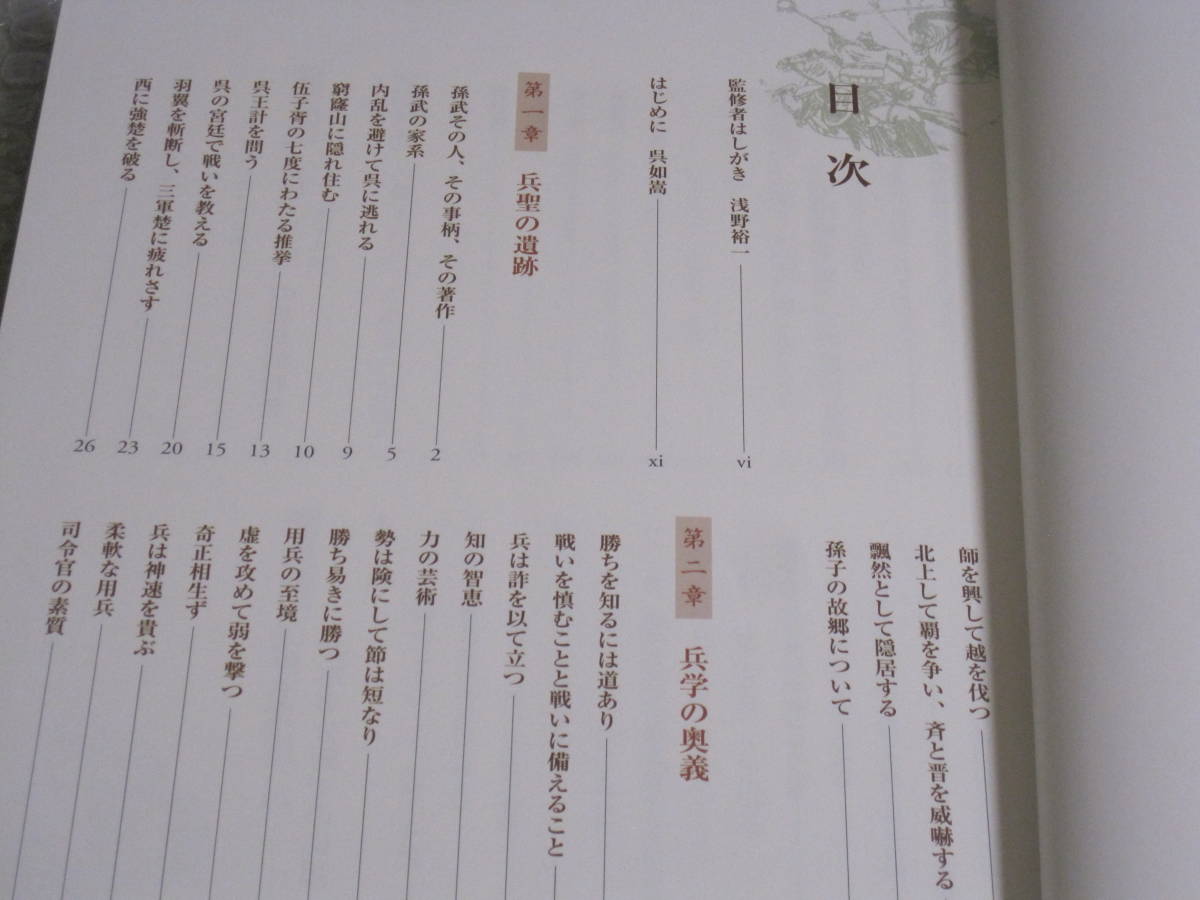 目次
監修者はしがき 浅野裕一 vi
はじめに 呉如嵩 xi
第一章 兵聖の遺跡
孫武その人、その事柄、その著作 2
孫武の家系 5
内乱を避けて呉に逃れる 9
窮窿山に隠れ住む 10
伍子胥の七度にわたる推挙 13
呉王計を問う 15
呉の宮廷で戦いを教える 20
羽翼を斬断し、三軍楚に疲れさす 23
西に強楚を破る 26
師を興して越を伐つ
北上して覇を争い、斉と晋を威嚇する
飄然として隠居する
孫子の故郷について
第二章 兵学の奥義
勝ちを知るには道あり
戦いを慎むことと戦いに備えること
兵は詐を以て立つ
知の智恵
力の芸術
勢は険にして節は短なり
勝ち易きに勝つ
用兵の至境
虚を攻めて弱を撃つ
奇正相生ず
兵は神速を貴ぶ
柔軟な用兵
司令官の素質